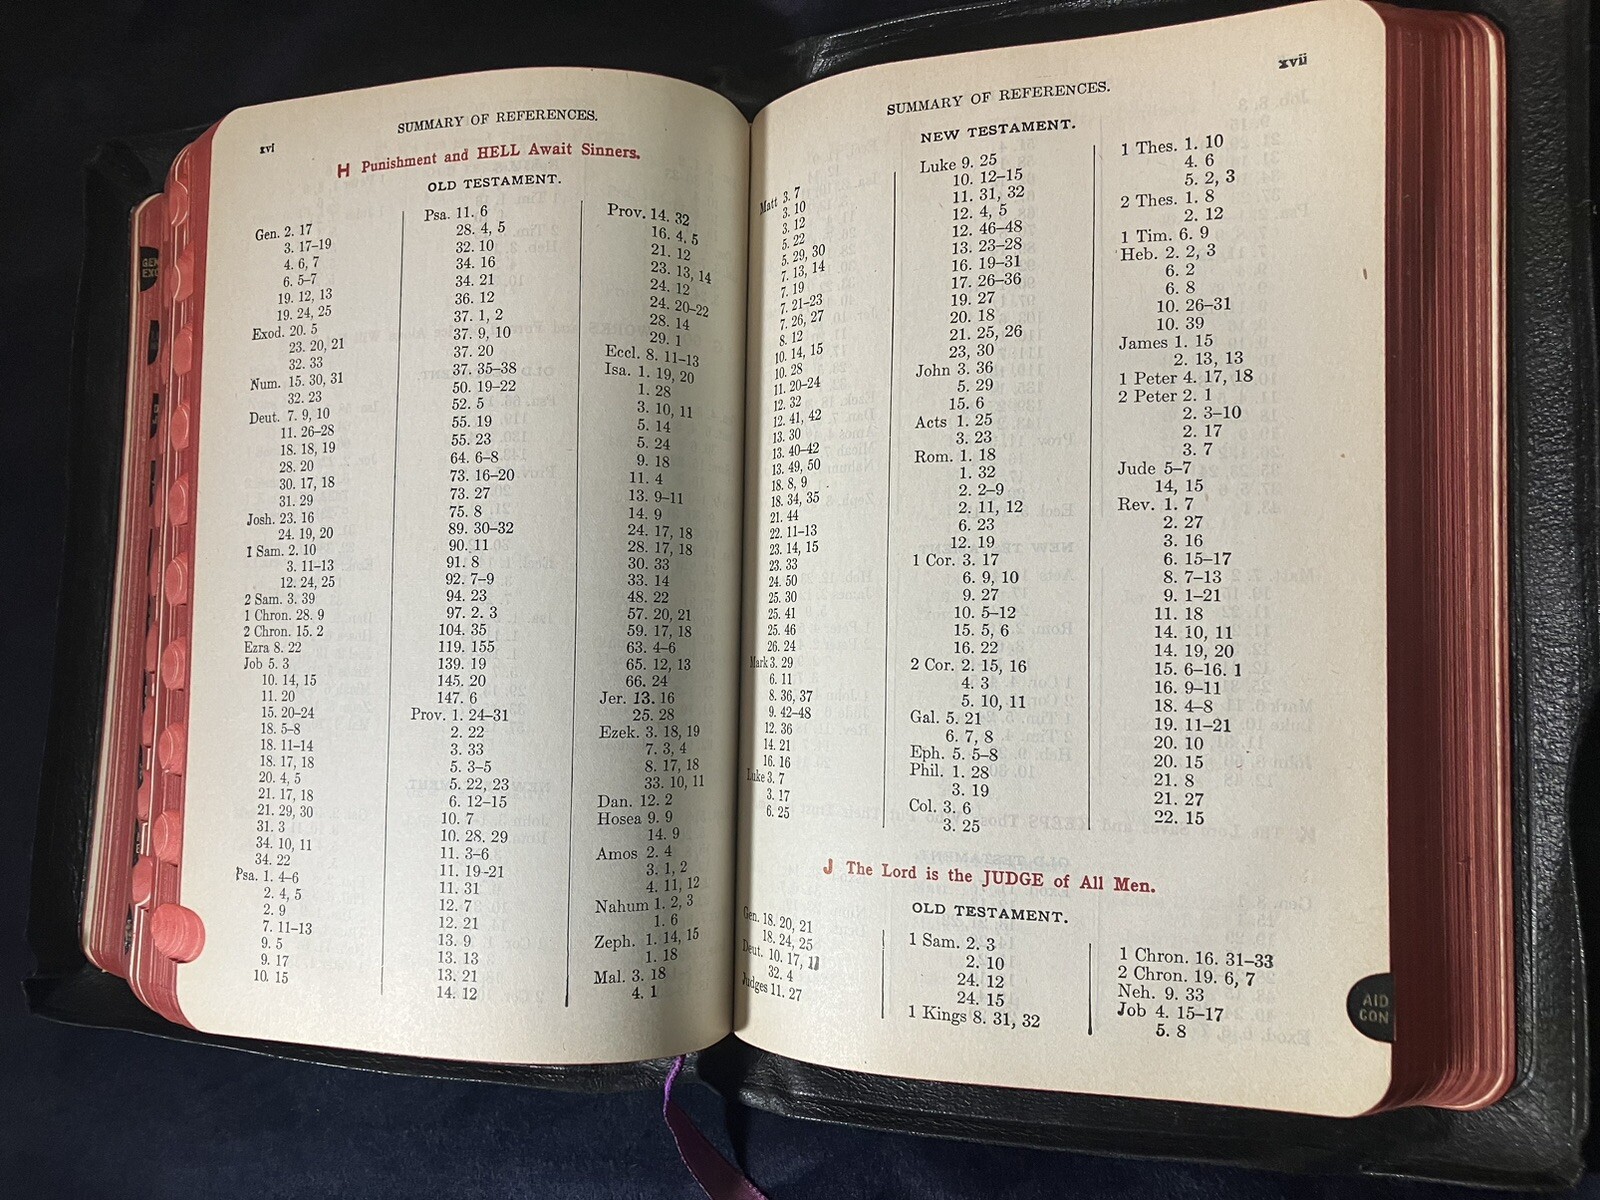 xvi
SUMMARY OF REFERENCES.
H Punishment and HELL Await Sinners.
OLD TESTAMENT.
Gen. 2. 17
3. 17–19
4. 6, 7
6. 5–7
19. 12, 13
19. 24, 25
Exod. 20. 5
23. 20, 21
32. 33
Num. 15. 30, 31
32. 23
Deut. 7. 9, 10
11. 26–28
18. 18, 19
28. 20
30. 17, 18
31. 29
Josh. 23. 16
24. 19, 20
1 Sam. 2. 10
3. 11–13
12. 24, 25
2 Sam. 3. 39
1 Chron. 28. 9
2 Chron. 15. 2
Ezra 8. 22
Job 5. 3
10. 14, 15
11. 20
15. 20–24
18. 5–8
18. 11–14
18. 17, 18
20. 4, 5
21. 17, 18
21. 29, 30
31. 3
34. 10, 11
34. 22
Psa. 1. 4–6
2. 4, 5
2. 9
7. 11–13
9. 5
9. 17
10. 15
Psa. 11. 6
28. 4, 5
32. 10
34. 16
34. 21
36. 12
37. 1, 2
37. 9, 10
37. 20
37. 35–38
50. 19–22
52. 5
55. 19
55. 23
64. 6–8
73. 16–20
73. 27
75. 8
89. 30–32
90. 11
91. 8
92. 7–9
94. 23
97. 2. 3
104. 35
119. 155
139. 19
145. 20
147. 6
Prov. 1. 24–31
2. 22
3. 33
5. 3–5
5. 22, 23
6. 12–15
10. 7
10. 28. 29
11. 3–6
11. 19-21
11. 31
12. 7
12. 21
13. 9
13. 13
13. 21
14. 12
Prov. 14. 32
16. 4, 5
21. 12
23. 13, 14
24. 12
24. 20–22
28. 14
29. 1
Eccl. 8. 11–13
Isa. 1. 19, 20
1. 28
3. 10, 11
5. 14
5. 24
9. 18
11. 4
13. 9–11
14. 9
24. 17, 18
28. 17, 18
30. 33
33. 14
48. 22
57. 20, 21
59. 17, 18
63. 4–6
65. 12, 13
66. 24
Jer. 13. 16
25. 28
Ezek. 3. 18, 19
7. 3, 4
8. 17, 18
33. 10, 11
Dan. 12. 2
Hosea 9. 9
14. 9
Amos 2. 4
3. 1, 2
4. 11, 12
Nahum 1. 2, 3
1. 6
Zeph. 1. 14, 15
1. 18
Mal. 3. 18
4. 1
xvii
SUMMARY OF REFERENCES.
NEW TESTAMENT.
Matt 3. 7
3. 10
3. 12
5. 22
5. 29, 30
7. 13, 14
7. 19
7. 21–23
7. 26, 27
8. 12
10. 14, 15
10. 28
11. 20–24
12. 32
12. 41, 42
13. 30
13. 40–42
13. 49, 50
18. 8, 9
18. 34, 35
21. 44
22. 11–13
23. 14, 15
23. 33
24. 50
25. 30
25. 41
25. 46
26. 24
Mark 3. 29
6. 11
8. 36, 37
9. 42–48
12. 36
14. 21
16. 16
Luke 3. 7
3. 17
6. 25
Luke 9. 25
10. 12–15
11. 31, 32
12. 4, 5
12. 46–48
13. 23–28
16. 19–31
17. 26–36
19. 27
20. 18
21. 25, 26
23, 30
John 3. 36
5. 29
15. 6
Acts 1. 25
3. 23
Rom. 1. 18
1. 32
2. 2–9
2. 11, 12
6. 23
12. 19
1 Cor. 3. 17
6. 9, 10
9. 27
10. 5–12
15. 5, 6
16. 22
2 Cor. 2. 15, 16
4. 3
5. 10, 11
Gal. 5. 21
6. 7, 8
Eph. 5. 5–8
Phil. 1. 28
3. 19
Col. 3. 6
3. 25
1 Thes. 1. 10
4. 6
5. 2, 3
2 Thes. 1. 8
2. 12
1 Tim. 6. 9
Heb. 2. 2, 3
6. 2
6. 8
10. 26–31
10. 39
James 1. 15
2. 13, 13
1 Peter 4. 17, 18
2 Peter 2. 1
2. 3–10
2. 17
3. 7
Jude 5–7
14, 15
Rev. 1. 7
2. 27
3. 16
6. 15–17
8. 7–13
9. 1–21
11. 18
14. 10, 11
14. 19, 20
15. 6–16. 1
16. 9–11
18. 4–8
19. 11–21
20. 10
20. 15
21. 8
21. 27
22. 15
J The Lord is the JUDGE of All Men.
OLD TESTAMENT.
Gen. 18. 20, 21
18. 24, 25
Deut. 10. 17, 11
32. 4
Judges 11. 27
1 Sam. 2. 3
2. 10
24. 12
24. 15
1 Kings 8. 31, 32
1 Chron. 16. 31–33
2 Chron. 19. 6, 7
Neh. 9. 33
Job 4. 15–17
5. 8
AID
CON
GEN
EXO